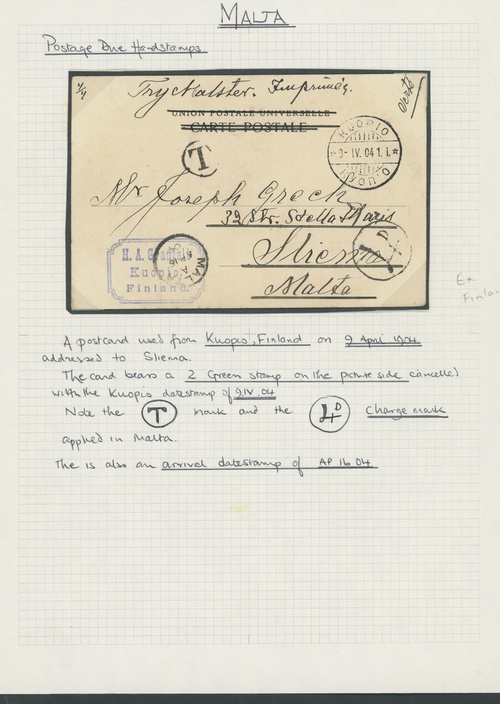 MALTA
Postage Due Handstamps
Trycksaker. Imprimés.
UNION POSTALE UNIVERSELLE
CARTE POSTALE
T
KUOPIO
9-IV.04 1.i.
KUOPIO
Mr Joseph Grech
32 Str. Stella Maris
Sliema
Malta
H. A. 
Kuopio
Finland.
MALTA
AP 16
04
4D
Ex
Finland
A postcard used from Kuopio, Finland on 9 April 1904
addressed to Sliema.
The card bears a 2 Green stamp on the picture side cancelled
with the Kuopio datestamp of 9 IV 04
Note the T mark and the 4D charge mark
applied in Malta.
The is also an arrival datestamp of AP 16 04